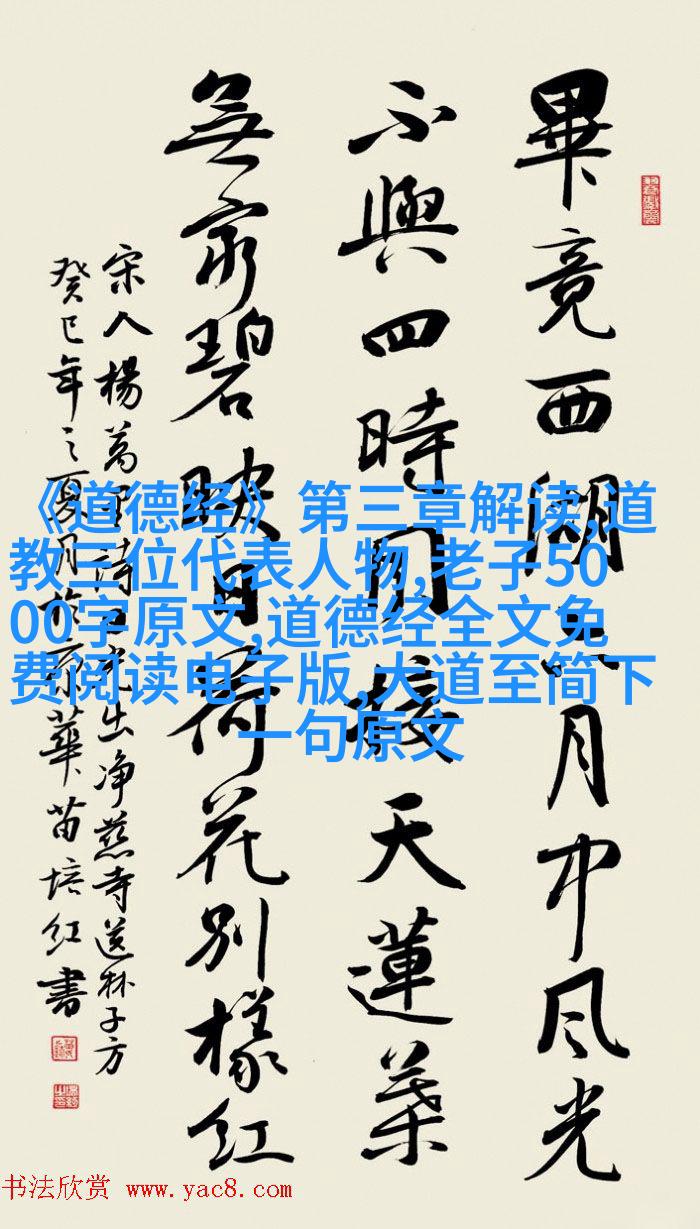 畢竟西湖六月中风光
不與四時同接天蓮葉
無穷碧映日荷花別樣红
宋人楊萬里詩曉出净慈寺送林子方
癸巳年之夏月於京華苗培红書
《道德经》第三章解读,道
教三位代表人物,老子50
00字原文,道德经全文免
费阅读电子版,大道至简下
一句原文
书法欣赏 www.yac8.com